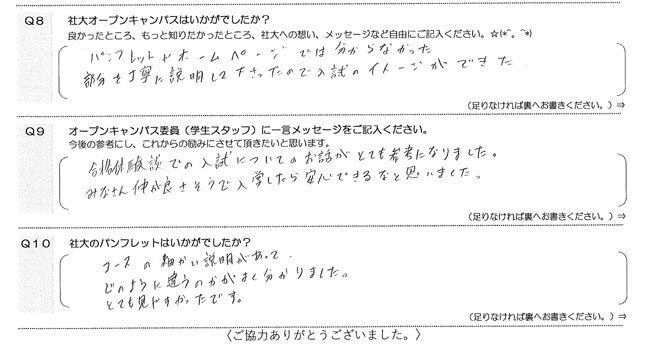 Q8 社大オープンキャンパスはいかがでしたか？
良かったところ、もっと知りたかったところ、社大への想い、メッセージなど自由にご記入ください。☆(*^。^*)
パンフレットやホームページでは分からなかった
部分を丁寧に説明して下さったので入試のイメージができた
（足りなければ裏へお書きください。）⇒
Q9 オープンキャンパス委員（学生スタッフ）に一言メッセージをご記入ください。
今後の参考にし、これからの励みにさせて頂きたいと思います。
合格体験談での入試についてのお話がとても参考になりました。
みなさん仲が良さそうで入学したら安心できるなと思いました。
（足りなければ裏へお書きください。）⇒
Q10 社大のパンフレットはいかがでしたか？
コースの細かい説明があって、
どのように違うのかがよく分かりました。
とても見やすかったです。
（足りなければ裏へお書きください。）⇒
〈ご協力ありがとうございました。〉